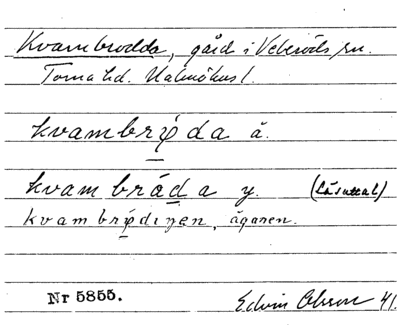 Kvambrodda, gård i Veberöds sn.
Torna hd. Malmöhus l.
kvambrǫ́da ä.
kvam bráda y. (Läsuttal)
kvambrǫ́dinen, ägaren.
Nr 5855.
Edvin Olsson 41.